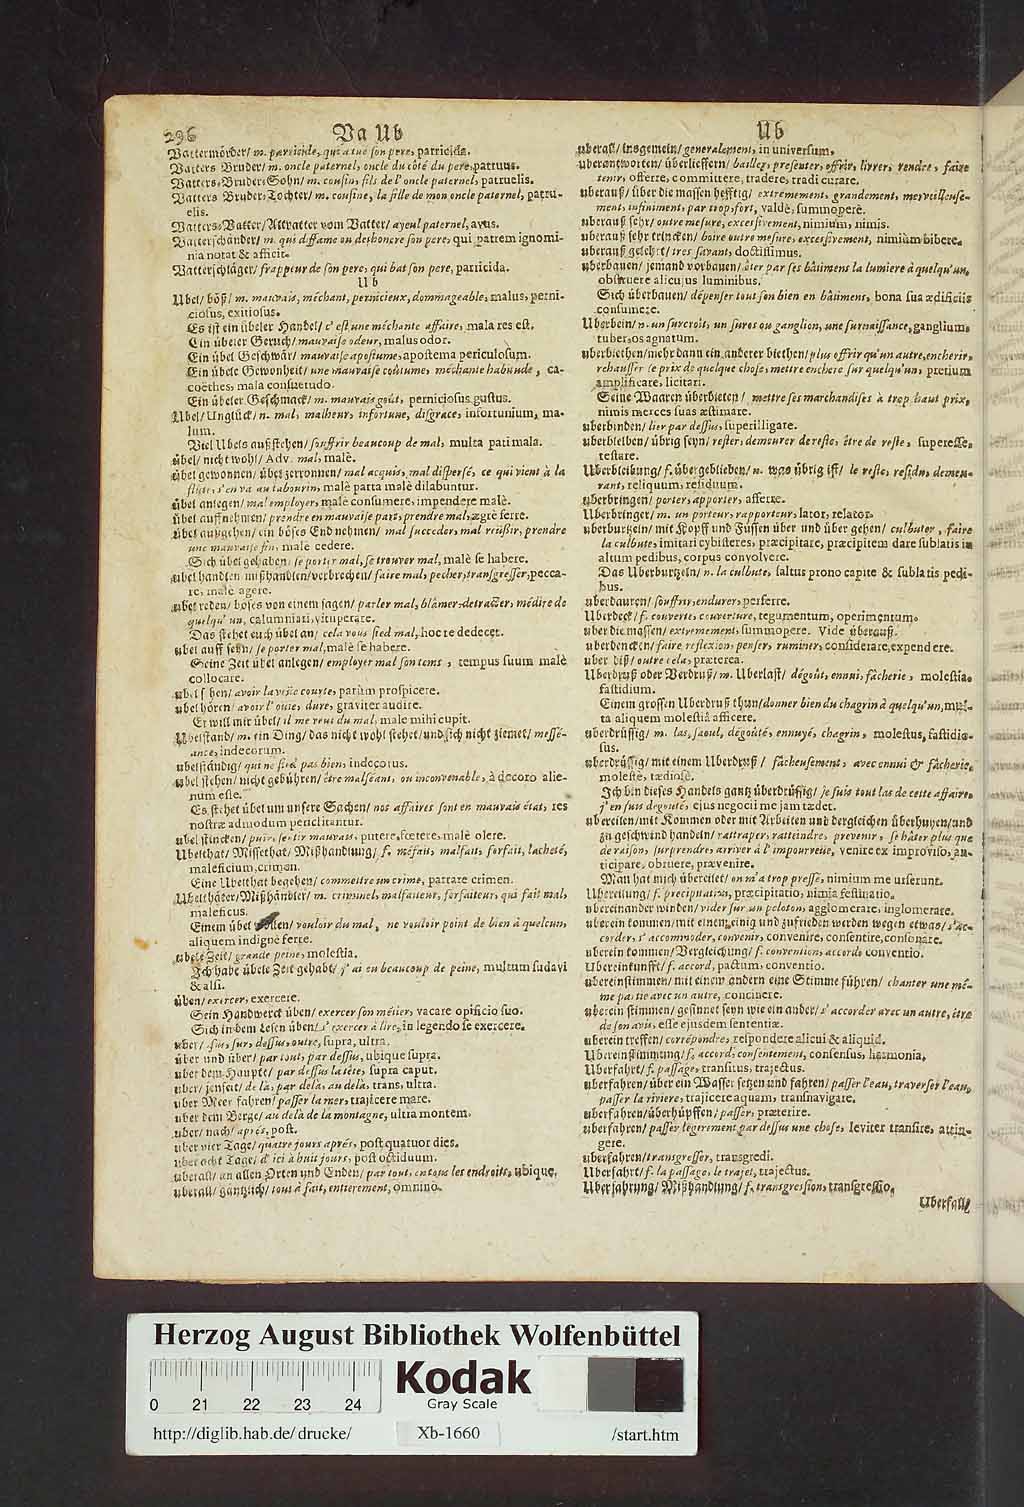 296
Va Ub
Ub
Vattermörder/ m. parricide, qui a tué son pere, patricida.
Vatters Bruder/ m. oncle paternel, oncle du côté du pere, patruus.
Vatters-Bruder-Sohn/ m. cousin, fils de l'oncle paternel, patruelis.
Vatters Bruder-Tochter/ m. cousine, la fille de mon oncle paternel, patru-
elis.
Vatters-Vatter/ Altvatter vom Vatter/ ayeul paternel, avus.
Vatterschänder/ m. qui diffame ou deshonore son pere, qui patrem ignomi-
nia notat & afficit.
Vatterschläger/ frappeur de son pere, qui bat son pere, parricida.
Ub
Ubel/ böß/ m. mauvais, méchant, pernicieux, dommageable, malus, perni-
ciosus, exitiosus.
Es ist ein übeler Handel/ c'est une méchante affaire, mala res est.
Ein übeler Geruch/ mauvaise odeur, malus odor.
Ein übel Geschwär/ mauvaise apostume, apostema periculosum.
Ein übele Gewonheit/ une mauvaise coûtume, méchante habitude, ca-
coëthes, mala consuetudo.
Ein übeler Geschmack/ m. mauvais goût, perniciosus gustus.
Ubel/ Unglück/ n. mal, malheur, infortune, disgrace, infortunium, ma-
lum.
Viel Ubels außstehen/ souffrir beaucoup de mal, multa pati mala.
übel/ nicht wohl/ Adv. mal, malè.
übel gewonnen/ übel zerronnen/ mal acquis, mal dispersé, ce qui vient à la
flûte, s'en va au tabourin, malè parta malè dilabuntur.
übel anlegen/ mal employer, malè consumere, impendere malè.
übel auffnehmen/ prendre en mauvaise part, prendre mal, ægrè ferre.
übel außgehen/ ein böses End nehmen/ mal succeder, mal reüssir, prendre
une mauvaise fin, malè cedere.
Sich übel gehaben/ se porter mal, se trouver mal, malè se habere.
übel handlen/ mißhandlen/ verbrechen/ faire mal, pecher, transgresser, pecca-
re, malè agere.
übel reden/ böses von einem sagen/ parler mal, blâmer, detracter, médire de
quelqu'un, calumniari, vituperare.
Das stehet euch übel an/ cela vous sied mal, hoc te dedecet.
übel auff seyn/ se porter mal, malè se habere.
Seine Zeit übel anlegen/ employer mal son tems, tempus suum malè
collocare.
übel sehen/ avoir la vuë courte, parùm prospicere.
übel hören/ avoir l'ouïe, dure, graviter audire.
Er will mir übel/ il me veut du mal, malè mihi cupit.
Ubelstand/ m. ein Ding/ das nicht wohl stehet/ und sich nicht ziemet/ messé-
ance, indecorum.
übelständig/ qui ne sied pas bien, indecorus.
übel stehen/ nicht gebühren/ être malséant, ou inconvenable, à decoro alie-
num esse.
Es stehet übel um unsere Sachen/ nos affaires sont en mauvais état, res
nostræ admodum periclitantur.
übel stincken/ puir, sentir mauvais, putere, fœtere, malè olere.
Ubelthat/ Missethat/ Mißhandlung/ f. méfait, malfait, forfait, lacheté,
maleficium, crimen.
Eine Ubelthat begehen/ commettre un crime, patrare crimen.
Ubelthäter/ Mißhändler/ m. criminel, malfaiteur, forfaiteur, qui fait mal,
maleficus.
Einem übel wollen/ vouloir du mal, ne vouloir point de bien à quelcun,
aliquem indignè ferre.
übele Zeit/ grande peine, molestia.
Ich habe übele Zeit gehabt/ j'ai eu beaucoup de peine, multum sudavi
& alsi.
üben/ exercer, exercere.
Sein Handwerck üben/ exercer son métier, vacare opificio suo.
Sich in dem Lesen üben/ s'exercer à lire, in legendo se exercere.
uber/ sus, sur, dessus, outre, supra, ultra.
über und über/ par tout, par dessus, ubique supra.
uber dem Haupte/ par dessus la tête, supra caput.
uber/ jenseit/ de là, par delà, au delà, trans, ultra.
uber Meer fahren/ passer la mer, trajicere mare.
uber dem Berge/ au delà de la montagne, ultra montem.
uber/ nach/ après, post.
uber vier Tage/ quatre jours après, post quatuor dies.
uber acht Tage/ d'ici à huit jours, post octiduum.
uberall/ an allen Orten und Enden/ par tout, en tous les endroits, ubique.
uberall/ gäntzlich/ tout à fait, entierement, omnino.
uberall/ insgemein/ generalement, in universum.
uberantworten/ überlieffern/ bailler, presenter, offrir, livrer, rendre, faire
tenir, offerre, committere, tradere, tradi curare.
uberauß/ über die massen hefftig/ extrémement, grandement, merveilleuse-
ment, infiniment, par trop, fort, valdè, summoperè.
uberauß sehr/ outre mesure, excessivement, nimium, nimis.
uberauß sehr trincken/ boire outre mesure, excessivement, nimiùm bibere.
uberauß gelehrt/ tres savant, doctissimus.
uberbauen/ jemand vorbauen/ ôter par ses bâtimens la lumiere à quelqu'un,
obstruere alicujus luminibus.
Sich überbauen/ dépenser tout son bien en bâtimens, bona sua ædificiis
consumere.
Uberbein/ n. un surcroit, un suros ou ganglion, une surnaissance, ganglium,
tuber, os agnatum.
uberbiethen/ mehr dann ein anderer biethen/ plus offrir qu'un autre, encherir,
rehausser le prix de quelque chose, mettre enchere sur quelqu'un, pretium
amplificare, licitari.
Seine Waaren überbieten/ mettre ses marchandises à trop haut prix,
nimis merces suas æstimare.
uberbinden/ lier par dessus, superilligare.
uberbleiben/ übrig seyn/ rester, demeurer de reste, être de reste, superesse,
restare.
Uberbleibung/ f. übergeblieben/ n. was übrig ist/ le reste, residu, demeu-
rant, reliquum, residuum.
uberbringen/ porter, apporter, afferre.
Uberbringer/ m. un porteur, rapporteur, lator, relator.
uberburtzeln/ mit Kopff und Füssen über und über gehen/ culbuter, faire
la culbute, imitari cybisteres, præcipitare, præcipitem dare sublatis in
altum pedibus, corpus convolvere.
Das Uberburtzeln/ n. la culbute, saltus prono capite & sublatis pedi-
bus.
uberdauren/ souffrir, endurer, perferre.
Uberdeck/ f. couverte, couverture, tegumentum, operimentum.
uber die massen/ extremement, summopere. Vide überauß.
uberdencken/ faire reflexion, penser, ruminer, considerare, expendere.
uber diß/ outre cela, præterea.
Uberdruß oder Verdruß/ m. Uberlast/ dégoût, ennui, fâcherie, molestia,
fastidium.
Einem grossen Uberdruß thun/ donner bien du chagrin à quelqu'un, mul-
ta aliquem molestiâ afficere.
uberdrüssig/ m. las, saoul, dégoûté, ennuyé, chagrin, molestus, fastidio-
sus.
uberdrüssig/ mit einem Uberdruß/ fâcheusement, avec ennui & fâcherie,
molestè, tædiosè.
Ich bin dieses Handels gantz überdrüssig/ je suis tout las de cette affaire,
j'en suis degouté, ejus negocii me jam tædet.
ubereilen/ mit Kommen oder mit Arbeiten und dergleichen überhuyen/ und
zu geschwind handeln/ rattraper, ratteindre, prevenir, se hâter plus que
de raison, surprendre, arriver à l'impourveüe, venire ex improviso, an-
ticipare, obruere, prævenire.
Man hat mich übereilet/ on m'a trop pressé, nimium me urserunt.
Ubereilung/ f. precipitation, præcipitatio, nimia festinatio.
ubereinander winden/ vider sur un peloton, agglomerare, inglomerare.
uberein kommen/ mit einem einig und zufrieden werden wegen etwas/ s'ac-
corder, s'accommoder, convenir, convenire, consentire, consonare.
uberein kommen/ Vergleichung/ f. convention, accord, conventio.
Ubereinkunfft/ f. accord, pactum, conventio.
ubereinstimmen/ mit einem andern eine Stimme führen/ chanter une mê-
me partie avec un autre, concinere.
uberein stimmen/ gesinnet seyn wie ein ander/ s'accorder avec un autre, être
de son avis, esse ejusdem sententiæ.
uberein treffen/ correpondre, respondere alicui & aliquid.
Ubereinstimmung/ f. accord, consentement, consensus, harmonia.
Uberfahrt/ f. passage, transitus, trajectus.
uberfahren/ über ein Wasser setzen und fahren/ passer l'eau, traverser l'eau,
passer la riviere, trajicere aquam, transnavigare.
uberfahren/ überhüpffen/ passer, præterire.
uberfahren/ passer legerement par dessus une chose, leviter transire, attin-
gere.
uberfahren/ transgresser, transgredi.
Uberfahrt/ f. la passage, le trajet, trajectus.
Uberfahrung/ Mißhandlung/ f. transgression, transgressio.
Uberfall/
Herzog August Bibliothek Wolfenbüttel
Kodak
Gray Scale
0 21 22 23 24
http://diglib.hab.de/drucke/
Xb-1660
/start.htm